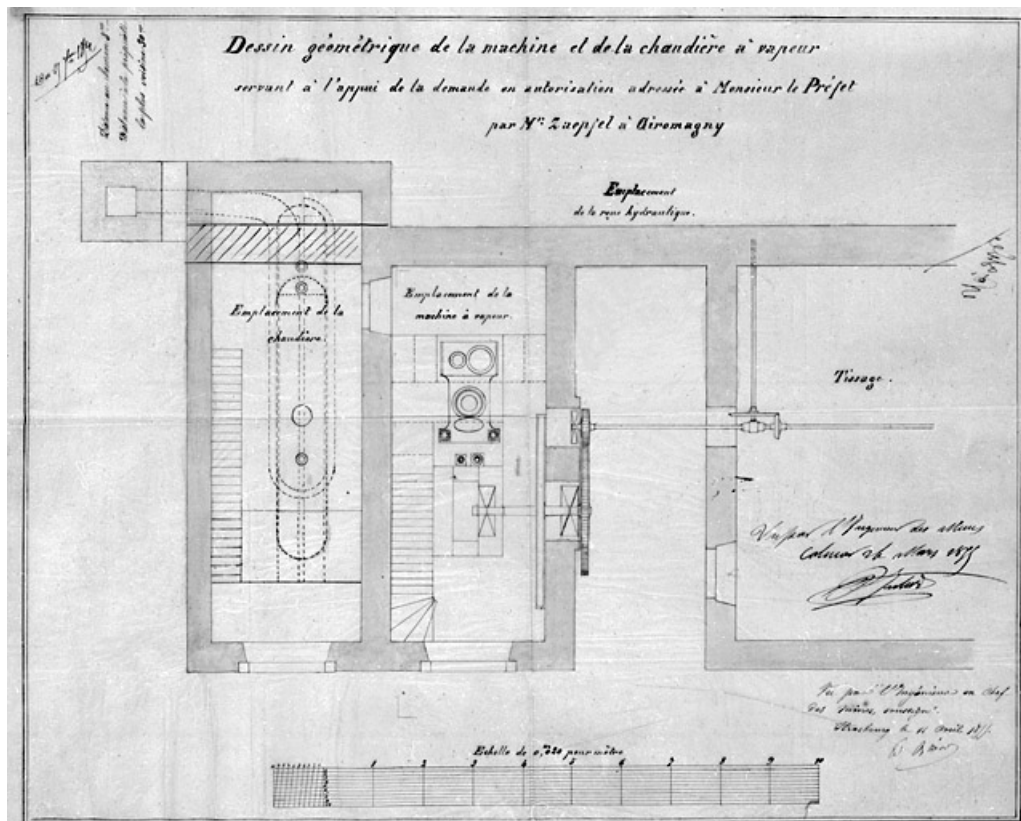 Dessin géométrique de la machine et de la chaudière à vapeur
servant à l'appui de la demande en autorisation adressée à Monsieur le Préfet
par Mr. Zaepfel à Giromagny
Emplacement
de la roue hydraulique.
Emplacement de la
chaudière.
Emplacement de la
machine à vapeur.
Tissage.
Vu par l'Ingénieur des Mines
Colmar 26 Mars 1855
Vu par l'Ingénieur en Chef
des mines, soussigné.
Strasbourg le 11 avril 1855.
Echelle de 0,m020 pour mètre
1 2 3 4 5 6 7 8 9 10